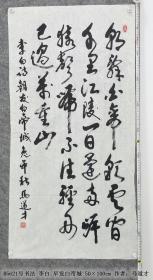 朝辞白帝彩云间
千里江陵一日还两岸
猿声啼不住轻舟
已过万重山
李白诗朝发白帝城
85621号书法 李白 早发白帝城 50×100cm 作者:马道才